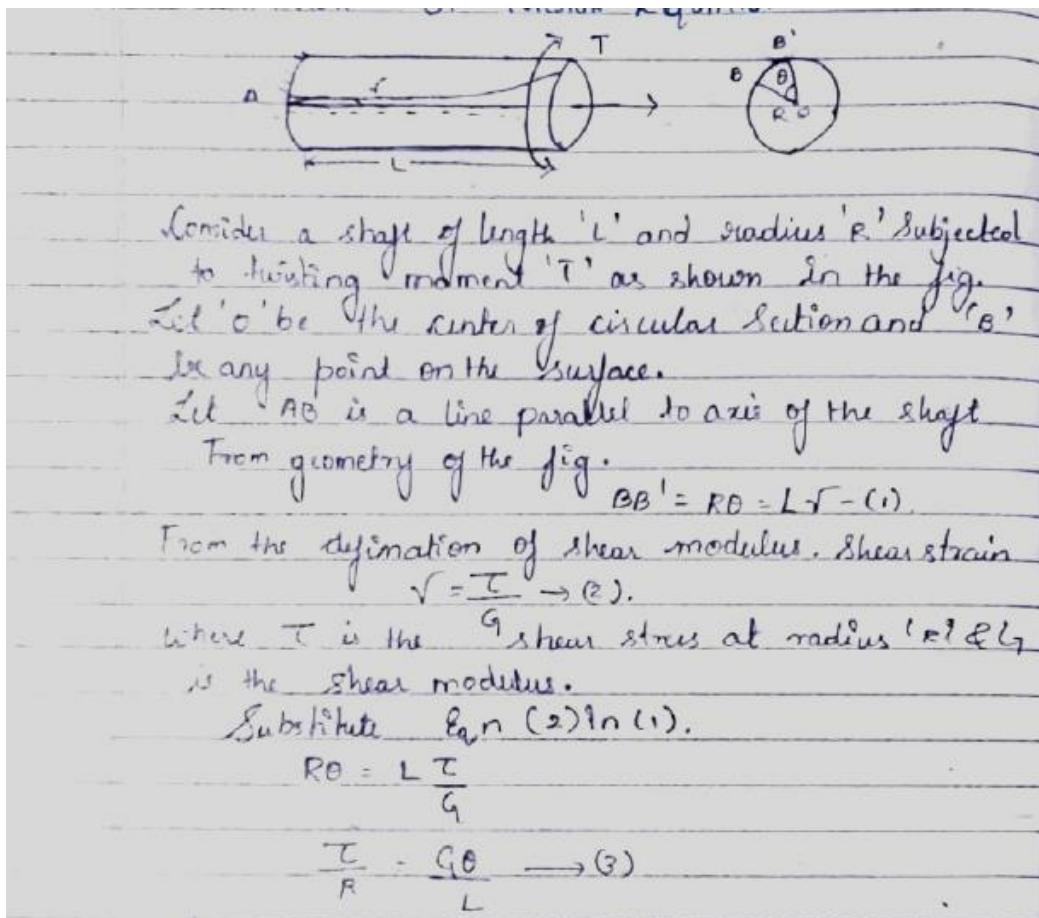 T
B'
A
B
θ
γ
R O
L
Consider a shaft of length 'L' and radius 'R' Subjected
to twisting moment 'T' as shown in the fig.
Let 'O' be the center of circular Section and 'B'
be any point on the surface.
Let AB is a line parallel to axis of the shaft
From geometry of the fig.
BB' = Rθ = Lγ - (1)
From the defination of shear modulus. Shear strain
γ = τ/G → (2).
where τ is the shear stress at radius 'R' & G
is the shear modulus.
Substitute Eqn (2) In (1).
Rθ = L τ/G
τ/R = Gθ/L → (3)